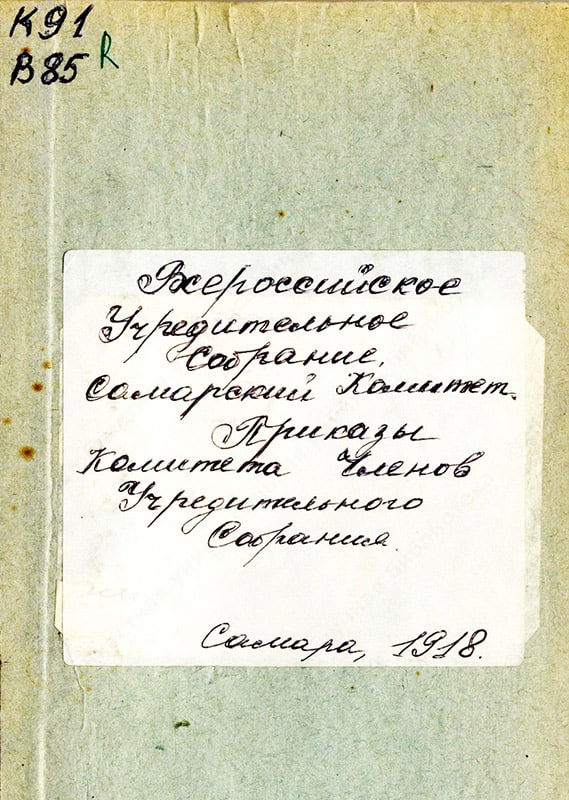 К91
В85 R
Всероссийское
Учредительное
Собрание.
Самарский Комитет.
Приказы
Комитета Членов
Учредительного
Собрания.
Самара, 1918.